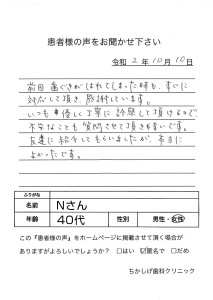 患者様の声をお聞かせ下さい
令和 2 年 10 月 10 日
前回歯ぐきがはれてしまった時も、すぐに
対応して頂き、感謝しています。
いつも手優しく丁寧に診察して頂けるので
不安なことも質問させて頂きやすいです。
友達に紹介してもらいましたが、本当に
よかったです。
ふりがな
名前 Nさん
年齢 40代 性別 男性・女性
この『患者様の声』をホームページに掲載させて頂く場合が
ありますがよろしいでしょうか？ □はい ☑匿名で □だめ
ちかしげ歯科クリニック